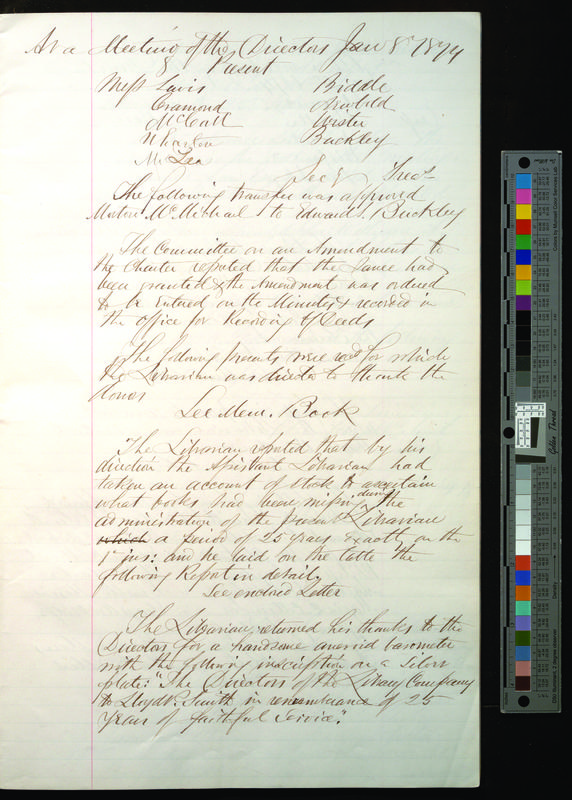 At a Meeting of the Directors Jan 8th 1874
Present
Mess Lewis Biddle
Cramond
McCall Wister
Wharton Buckley
McLea
Secy Treas
The following transfer was approved
Morton McMichael to Edward S. Buckley
The Committee on an Amendment to
the Charter reported that the same had
been granted & the Amendment was ordered
to be entered on the Minutes & recorded in
the office for Recording of Deeds
The following presents were recd for which
the Librarian was directed to thank the
donors
See Mem. Book
The Librarian reported that by his
direction the Assistant Librarian had
taken an account of stock to ascertain
what books had been missing during the
administration of the present Librarian
which a period of 25 years exactly on the
1st ins: and he laid on the table the
following Report in detail,
See enclosed Letter
The Librarian returned his thanks to the
Directors for a handsome aneroid barometer
with the following inscription on a silver
plate: "The Directors of the Library Company
to Lloyd P. Smith in remembrance of 25
years of faithful service".